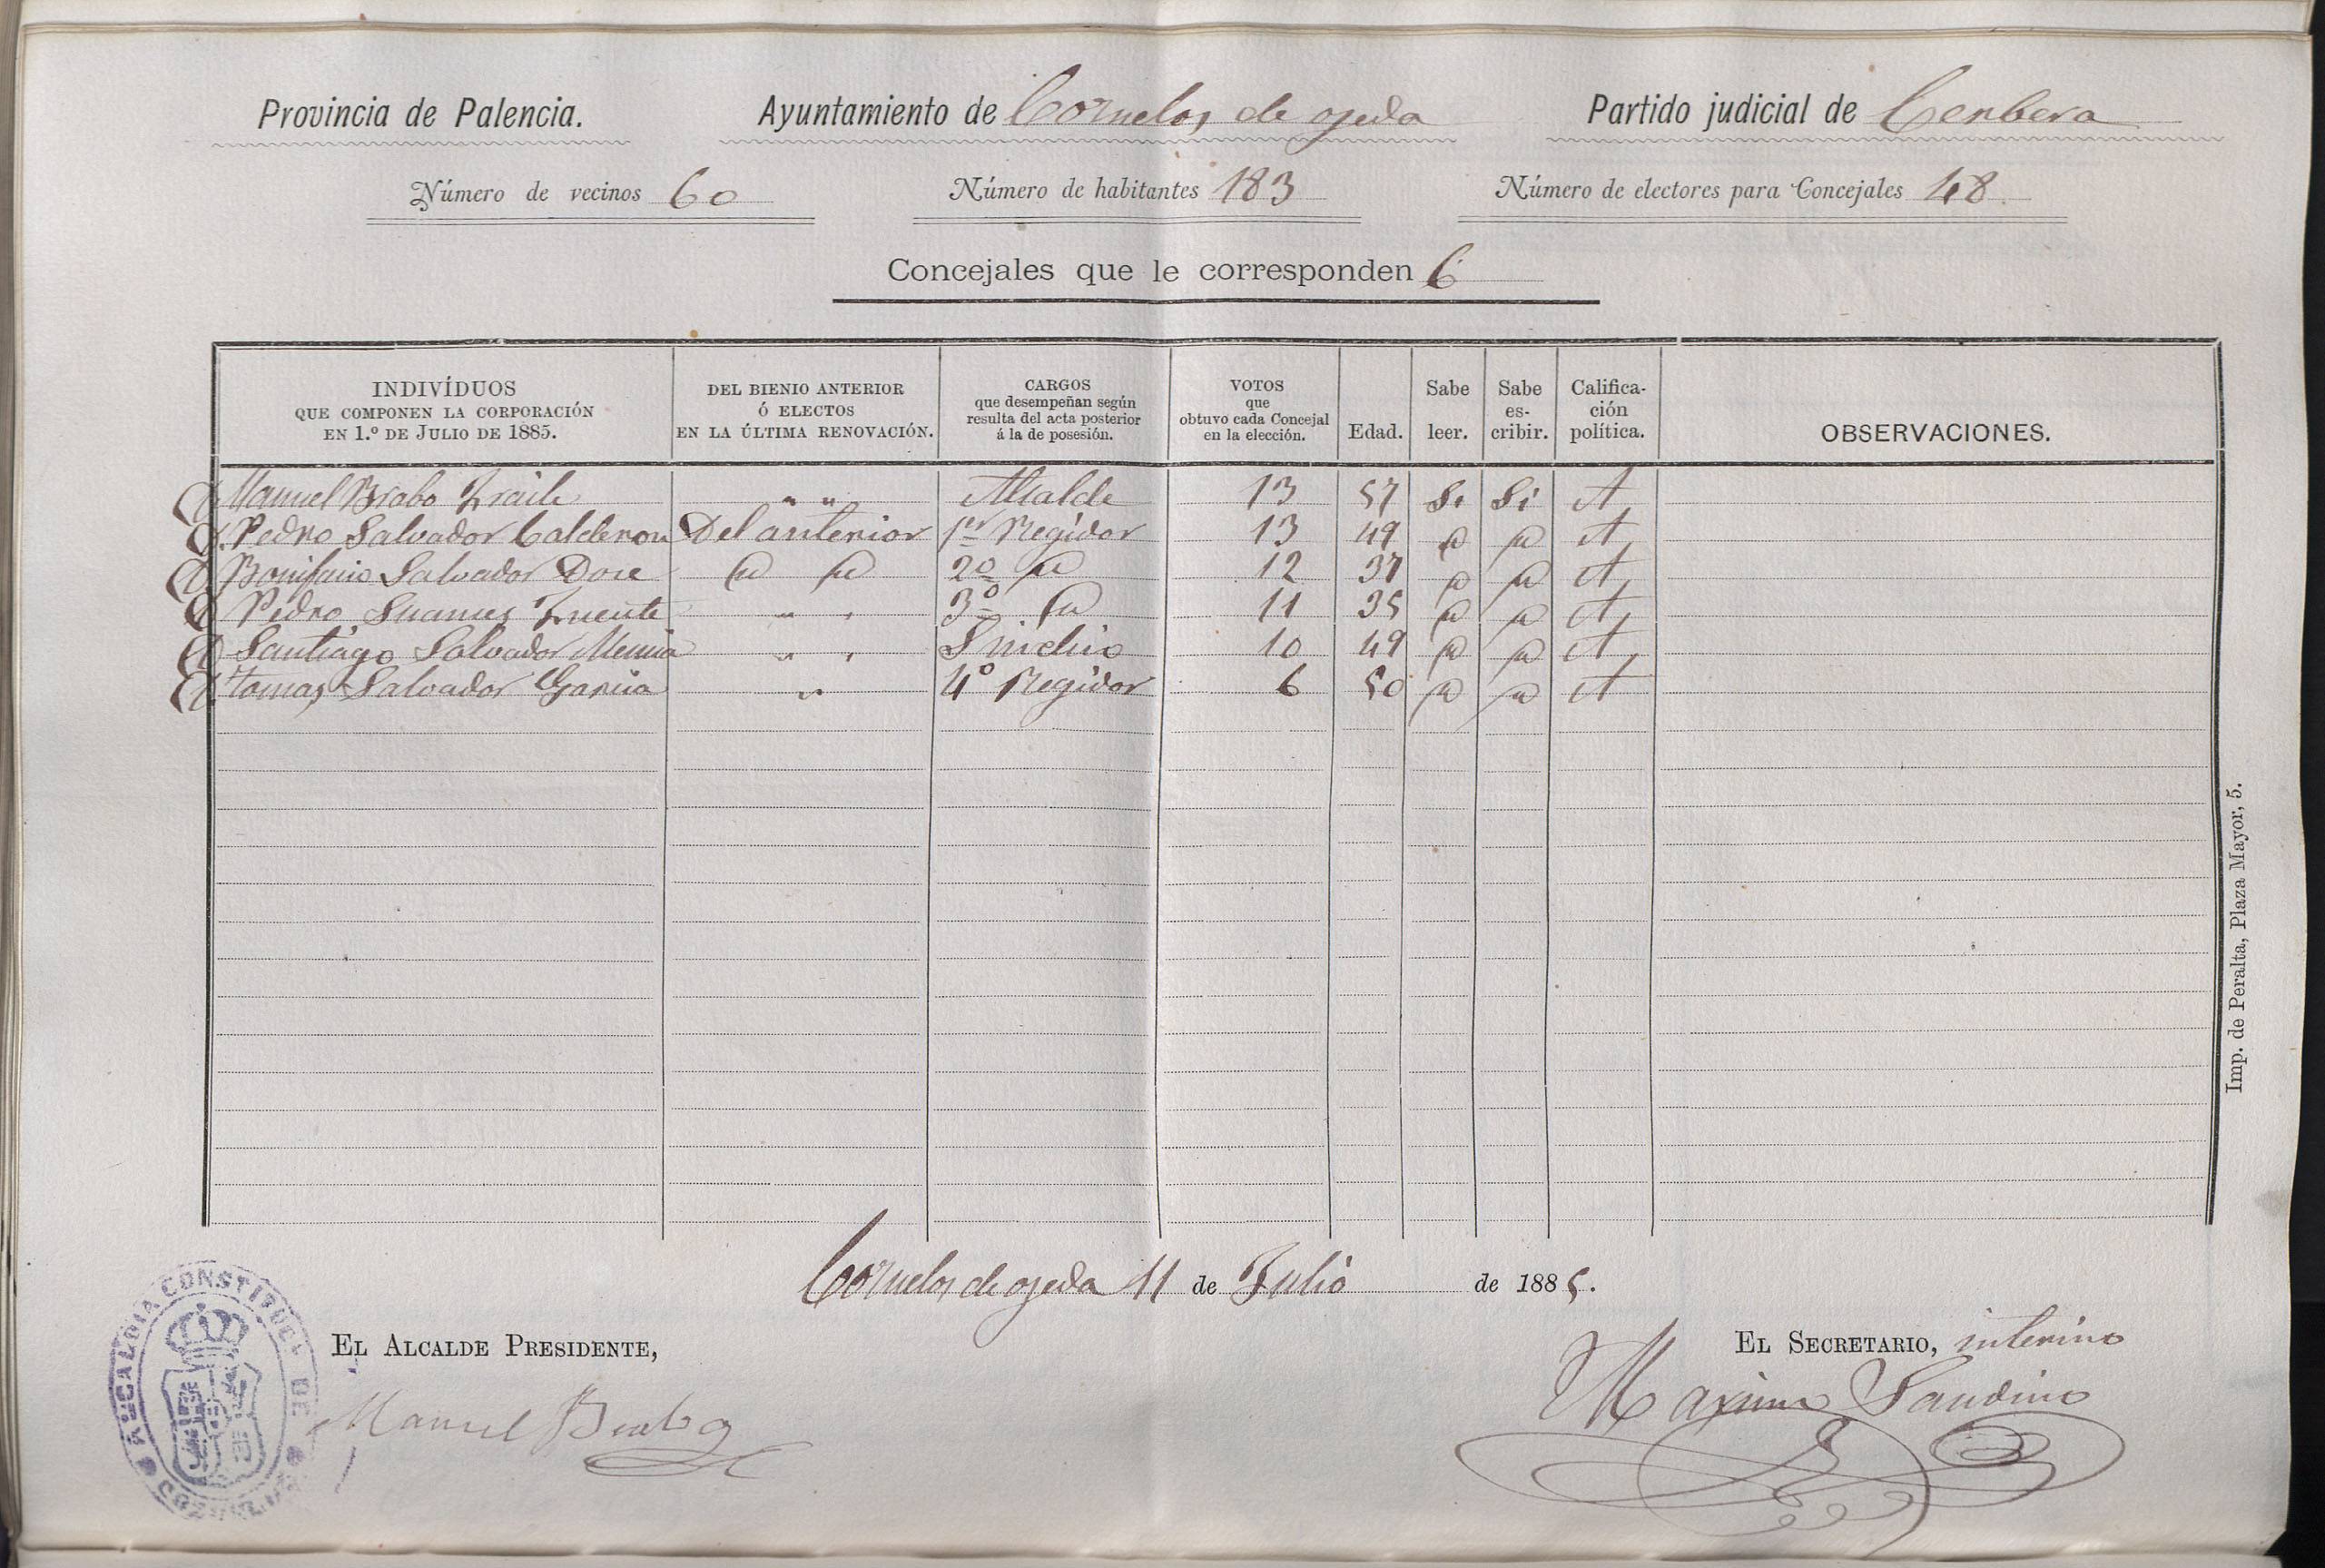 Provincia de Palencia. Ayuntamiento de Cozuelos de ojeda Partido judicial de Cerbera
Número de vecinos 60 Número de habitantes 183 Número de electores para Concejales 48.
Concejales que le corresponden 6
INDIVÍDUOS QUE COMPONEN LA CORPORACIÓN EN 1.º DE JULIO DE 1885. DEL BIENIO ANTERIOR Ó ELECTOS EN LA ÚLTIMA RENOVACIÓN. CARGOS que desempeñan según resulta del acta posterior á la de posesión. VOTOS que obtuvo cada Concejal en la elección. Edad. Sabe leer. Sabe es-cribir. Califica-ción política. OBSERVACIONES.
Manuel Brabo Fraile " " Alcalde 13 57 Si Si A
Pedro Salvador Calderon Del anterior 1er Regidor 13 49 " " A
Bonifacio Salvador Doce " " 2º " 12 37 " " A
Pedro Fuente " " 3º " 11 35 " " A
Santiago Salvador " " Sindico 10 49 " " A
Tomas Salvador Garcia " 4º Regidor 6 50 " " A
Cozuelos de ojeda 11 de Julio de 1885.
EL ALCALDE PRESIDENTE, EL SECRETARIO, interino
Manuel Brabo Maximo Sandino
ALCALDIA CONSTITUCL. DE
Imp. de Peralta, Plaza Mayor, 5.